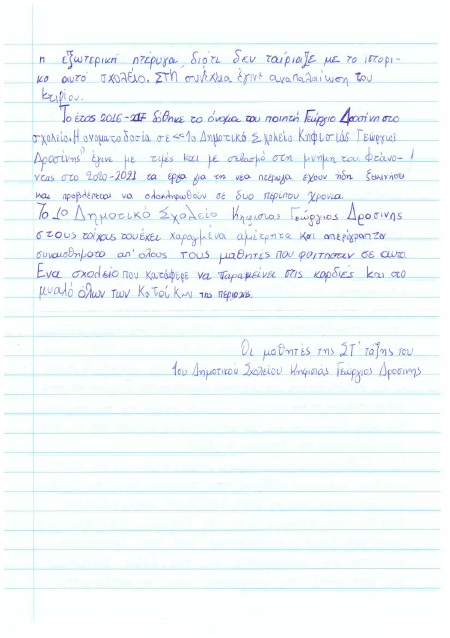 η εξωτερική πτέρυγα, διότι δεν ταίριαζε με το ιστορι-
κο αυτό σχολείο. ΣΤη συνέχεια έγινε αναπαλαίωση του
κτηρίου.
Το έτος 2016-17 δόθηκε το όνομα του ποιητή Γεώργιο Δροσίνη στο
σχολείο. Η ονοματοδοσία σε <<1ο Δημοτικό Σχολείο Κηφισιάς Γεώργιος
Δροσίνης>> έγινε με τιμές και με σεβασμό στη μνήμη του. Φτάνο-
ντας στο 2020-2021 τα έργα για τη νέα πτέρυγα έχουν ήδη ξεκινήσει
και προβλέπεται να ολοκληρωθούν σε δυο περίπου χρόνια.
Το 1ο Δημοτικό Σχολείο Κηφισιας Γεώργιος Δροσινης
στους τοίχους του έχει χαραγμένα αμέτρητα και απερίγραπτα
συναισθήματα απ' όλους τους μαθητές που φοίτησαν σε αυτο.
Ενα σχολείο που κατάφερε να παραμείνει στις καρδιές και στο
μυαλό όλων των Κατοίκων της περιοχής.
Οι μαθητές της ΣΤ' τάξης του
1ου Δημοτικού Σχολείου Κηφισιας Γεώργιος Δροσινης